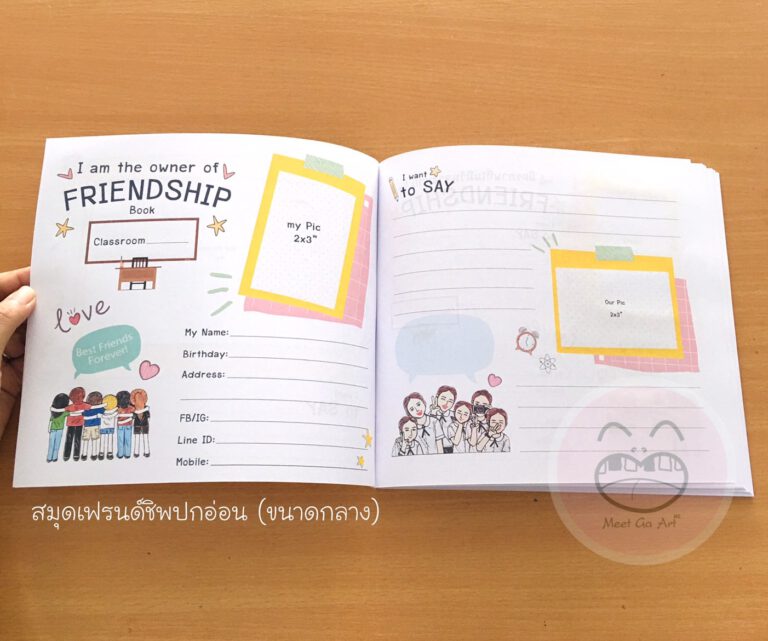 I am the owner of
FRIENDSHIP
Book
Classroom
my Pic
2x3"
love
Best Friends
Forever!
My Name:
Birthday:
Address:
FB/IG:
Line ID:
Mobile:
I want
to SAY
Our Pic
2x3"
สมุดเฟรนด์ชิพปกอ่อน (ขนาดกลาง)
Meet Ga Art